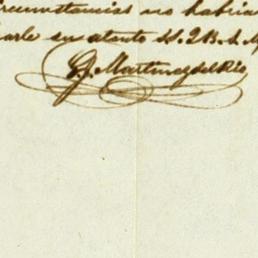 ircunstancias no habria
arle su atento S. Q. B. S. M.
G. Martinez del Rio